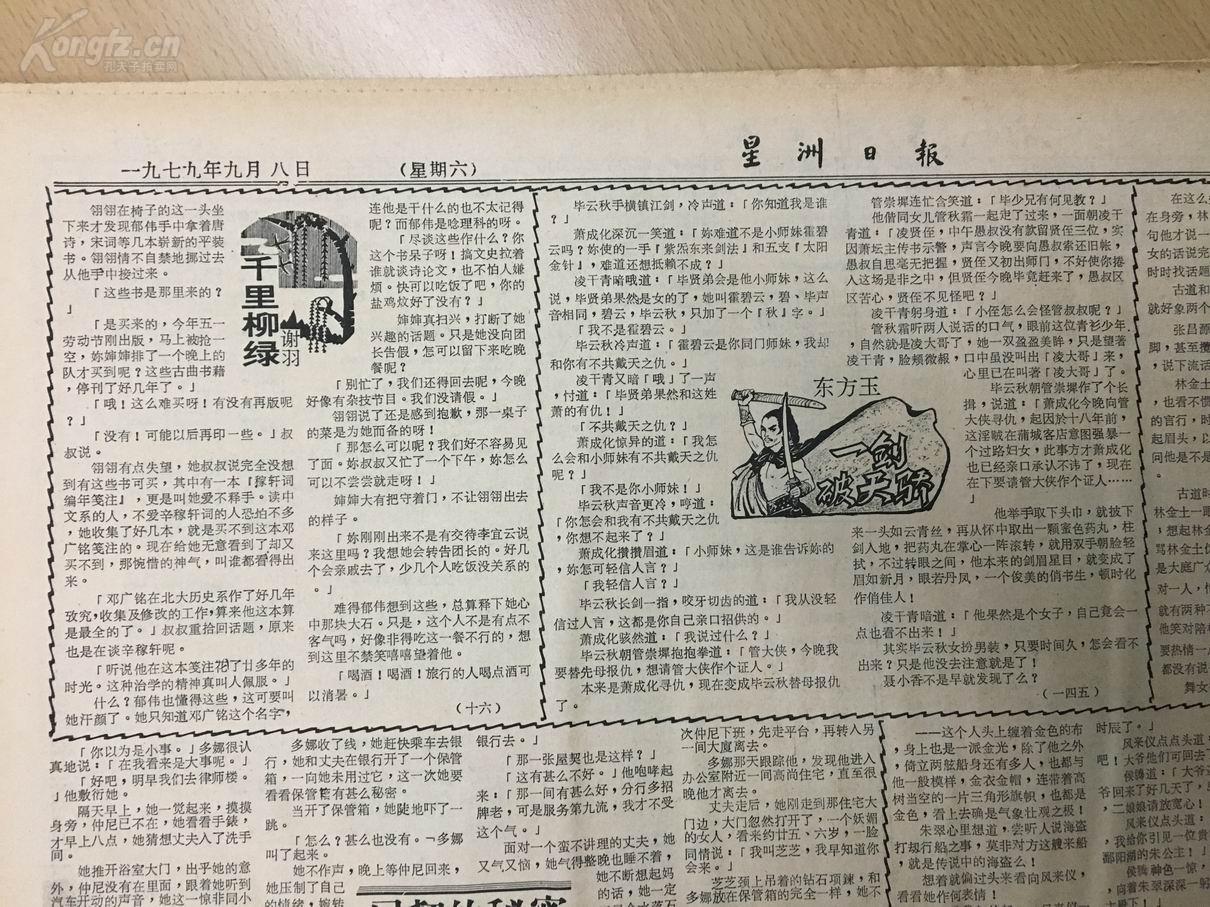 Kongfz.cn
孔夫子拍卖网
一九七九年九月八日
(星期六)
星洲日報
千里柳绿
谢羽
翎翎在椅子的这一头坐
下来才发现郁伟手中拿着唐
诗，宋词等几本崭新的平装
书。翎翎情不自禁地挪过去
从他手中接过来。
「这些书是那里来的？
」
「是买来的，今年五一
劳动节刚出版，马上被抢一
空，妳婶婶排了一个晚上的
队才买到呢？这些古曲书藉
，停刊了好几年了。」
「哦！这么难买呀！有没有再版呢
？」
「没有！可能以后再印一些。」叔
叔说。
翎翎有点失望，她叔叔说完全没想
到有这些书可买，其中有一本『稼轩词
编年笺注』，更是叫她爱不释手。读中
文系的人，不爱辛稼轩词的人恐怕不多
，她收集了好几本，就是买不到这本邓
广铭笺注的。现在给她无意看到了却又
买不到，那惋惜的神气，叫谁都看得出
来。
「邓广铭在北大历史系作了好几年
攷究，收集及修改的工作，算来他这本算
是最全的了。」叔叔重拾回话题，原来
也是在谈辛稼轩呢。
「听说他在这本笺注花了廿多年的
时光。这种治学的精神真叫人佩服。」
什么？郁伟也懂得这些，这可要叫
她汗颜了。她只知道邓广铭这个名字，
连他是干什么的也不太记得
呢？而郁伟是唸理科的呀。
「尽谈这些作什么？你
这个书呆子呀！搞文史拉着
谁就谈诗论文，也不怕人嫌
烦。快可以吃饭了吧，你的
盐鸡炆好了没有？」
婶婶真扫兴，打断了她
兴趣的话题。只是她没向团
长告假，怎可以留下来吃晚
餐呢？
「别忙了，我们还得回去呢，今晚
好像有杂技节目。我们没请假。」
翎翎说了还是感到抱歉，那一桌子
的菜是为她而备的呀！
「那怎么可以呢？我们好不容易见
了面。妳叔叔又忙了一个下午，妳怎么
可以不尝尝就走呀！」
婶婶大有把守着门，不让翎翎出去
的样子。
「妳刚刚出来不是有交待李宜云说
来这里吗？我想她会转告团长的。好几
个会亲戚去了，少几个人吃饭没关系的
。」
难得郁伟想到这些，总算释下她心
中那块大石。只是，这个人不是有点不
客气吗，好像非得吃这一餐不行的，想
到这里不禁笑嘻嘻望着他。
「喝酒！喝酒！旅行的人喝点酒可
以消暑。」
(十六)
毕云秋手横镇江剑，冷声道：「你知道我是谁
？」
萧成化深沉一笑道：「妳难道不是小师妹霍碧
云吗？妳使的一手『紫炁东来剑法』和五支『太阳
金针』，难道还想抵赖不成？」
凌干青暗哦道：「毕贤弟会是他小师妹，这么
说，毕贤弟果然是女的了，她叫霍碧云，碧、毕声
音相同，碧云，毕云秋，只加了一个『秋』字。」
「我不是霍碧云。」
毕云秋冷声道：「霍碧云是你同门师妹，我却
和你有不共戴天之仇。」
凌干青又暗「哦」了一声
，忖道：「毕贤弟果然和这姓
萧的有仇！」
「不共戴天之仇？」
萧成化惊异的道：「我怎
么会和小师妹有不共戴天之仇
呢？」
「我不是你小师妹！」
毕云秋声音更冷，哼道：
「你怎会和我有不共戴天之仇
，你想不起来了？」
萧成化攒攒眉道：「小师妹，这是谁告诉妳的
，妳怎可轻信人言？」
「我轻信人言？」
毕云秋长剑一指，咬牙切齿的道：「我从没轻
信过人言，这都是你自己亲口招供的。」
萧成化骇然道：「我说过什么？」
毕云秋朝管崇墀抱抱拳道：「管大侠，今晚我
要替先母报仇，想请管大侠作个证人。」
本来是萧成化寻仇，现在变成毕云秋替母报仇
了。
东方玉
一剑破天骄
管崇墀连忙含笑道：「毕少兄有何见教？」
他偕同女儿管秋霜一起走了过来，一面朝凌干
青道：「凌贤侄，中午愚叔没有款留贤侄三位，实
因萧坛主传书示警，声言今晚要向愚叔索还旧帐，
愚叔自思毫无把握，贤侄又初出师门，不好使你捲
人这场是非之中，但贤侄今晚毕竟赶来了，愚叔区
区苦心，贤侄不见怪吧？」
凌干青躬身道：「小侄怎么会怪管叔叔呢？」
管秋霜听两人说话的口气，眼前这位青衫少年
，自然就是凌大哥了，她一双盈盈美眸，只是望著
凌干青，脸颊微赧，口中虽没叫出「凌大哥」来，
心里已在叫著「凌大哥」了。
毕云秋朝管崇墀作了个长
揖，说道：「萧成化今晚向管
大侠寻仇，起因於十八年前，
这淫贼在蒲城客店意图强暴一
个过路妇女，此事方才萧成化
也已经亲口承认不讳了，现在
在下要请管大侠作个证人……
」
他举手取下头巾，就披下
来一头如云青丝，再从怀中取出一颗蜜色药丸，柱
剑人地，把药丸在掌心一阵滚转，就用双手朝脸轻
拭，不过转眼之间，他本来的剑眉星目，就变成了
眉如新月，眼若丹凤，一个俊美的俏书生，顿时化
作俏佳人！
凌干青暗道：「他果然是个女子，自己竟会一
点也看不出来！」
其实毕云秋女扮男装，只要时间久，怎会看不
出来？只是他没去注意就是了！
聂小香不是早就发现了么？
(一四五)
在这么
在身旁，林
句他才说一
女的话说完
时时找话题
古道和
就好象两个
张昌源
脚，甚至攒
，说下流话
林金士
，也看不惯
的言行，时
起眉头，以
问他是不是
古道时
林金土一眼
，想起林金
骂林金土似
是大庭广众
对一人，他
就有两种不
他笑对陪着
要热情一点
都没有说
舞女
「你以为是小事。」多娜很认
真地说：「在我看来是大事呢。」
「好吧，明早我们去律师楼。
」他敷衍她。
隔天早上，她一觉起来，摸摸
身旁，仲尼已不在，她看看手錶，
才早上八点，她猜想丈夫入了洗手
间。
她推开浴室大门，出乎她的意
外，仲尼没有在里面，跟着她听到
汽车开动的声音，她这一惊非同小
多娜收了线，她赶快乘车去银
行，她和丈夫在银行开了一个保管
箱，一向她未用过它，这一次她要
看看保管箱有甚么秘密。
当开了保管箱，她陡地吓了一
跳。
「怎么？甚么也没有。」多娜
叫了起来。
她不作声，晚上等仲尼回来，
她压制了自己
的情绪，婉转
银行去。」
「那一张屋契也是这样？」
「这有甚么不好。」他咆哮起
来：「那一间有甚么好，分行多招
牌老，可是服务第九流，我才不受
这个气。」
面对一个蛮不讲理的丈夫，她
又气又恼，她气得整晚也睡不着，
她不断想起妈
的话，她一定
次仲尼下班，先走平台，再转入另
一间大廈离去。
多娜那天跟踪他，发现他进入
办公室附近一间高尚住宅，直至很
晚他才离去。
丈夫走后，她刚走到那住宅大
门边，大门忽然打开了，一个妖媚
的女人，看来约廿五、六岁，一脸
同情说：「我叫芝芝，我早知道你
会来。」
芝芝颈上吊着的钻石项鍊，和
多娜放在保管箱的完全一样，她不
——这个人头上缠着金色的布
，身上也是一派金光，除了他之外
，倚立两舷船身还有多人，也都与
他一般模样，金衣金帽，连带着高
树当空的一片三角形旗帜，也都是
金色，看上去确是气象壮观之极！
朱翠心里想道，尝听人说海盗
打劫行船之事，莫非对方这艘来船
，就是传说中的海盗么！
想着就偏过头来看向风来仪，
看看她作何表情！
时辰了。」
风来仪点点头道
吧！大爷他们可回去
侯腾道：「大爷
爷回来了好几天了，
，二娘娘请放宽心！
风来仪点头道：
，我给你引见一位贵
鄱阳湖的朱公主！」
侯腾神色一惊，
，向着朱翠深深一躬